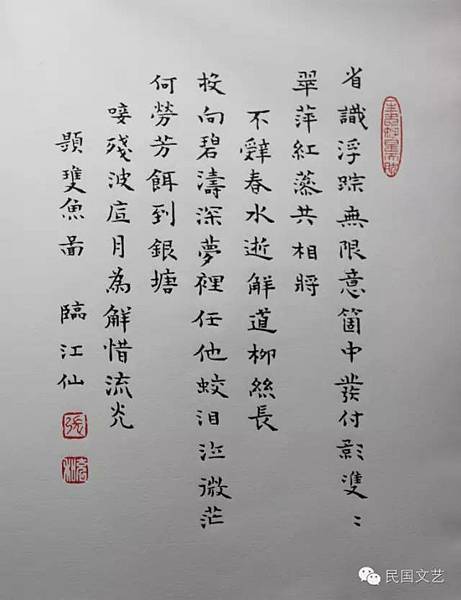 省識浮踪無限意箇中發付影雙〻
翠萍紅藻共相將
不辭春水逝解道柳絲長
投向碧濤深夢裡任他蛟泪泣微茫
何勞芳餌到銀塘
唼殘波底月為解惜流光
題雙魚啚 臨江仙
張
民国文艺